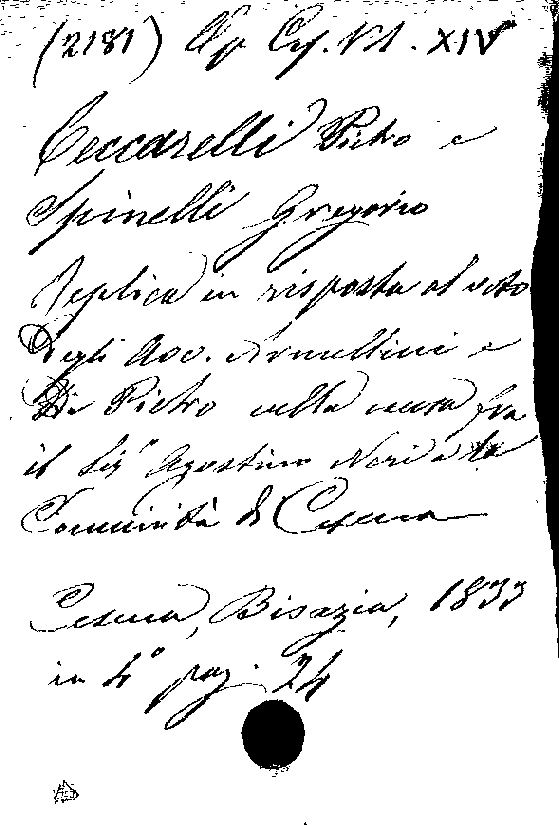 (2181) Op. Ces. Vol. XIV
Ceccarelli Pietro e
Spinelli Gregorio
Replica in risposta al voto
Degli Avv. Armellini e
De Pietro nella causa fra
il Sigr Agostino Neri e la
Comunità di Cesena
Cesena, Bisazia, 1833
in 4° pag. 24